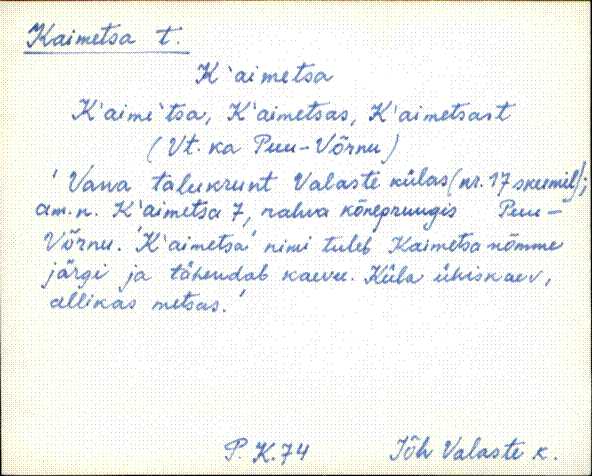 Kaimetsa t.
K`aimetsa
K`aime`tsa, K`aimetsas, K`aimetsast
(Vt. ka Puu-Võrnu)
' Vana talukrunt Valaste külas (nr. 17 skeemil);
am. n. K`aimetsa 7, rahva kõnepruugis Puu-
Võrnu. 'K`aimetsa' nimi tuleb Kaimetsa nõmme
järgi ja tähendab kaevu. Küla ühiskaev,
allikas metsas.'
P. K. 74 Jõh Valaste k.